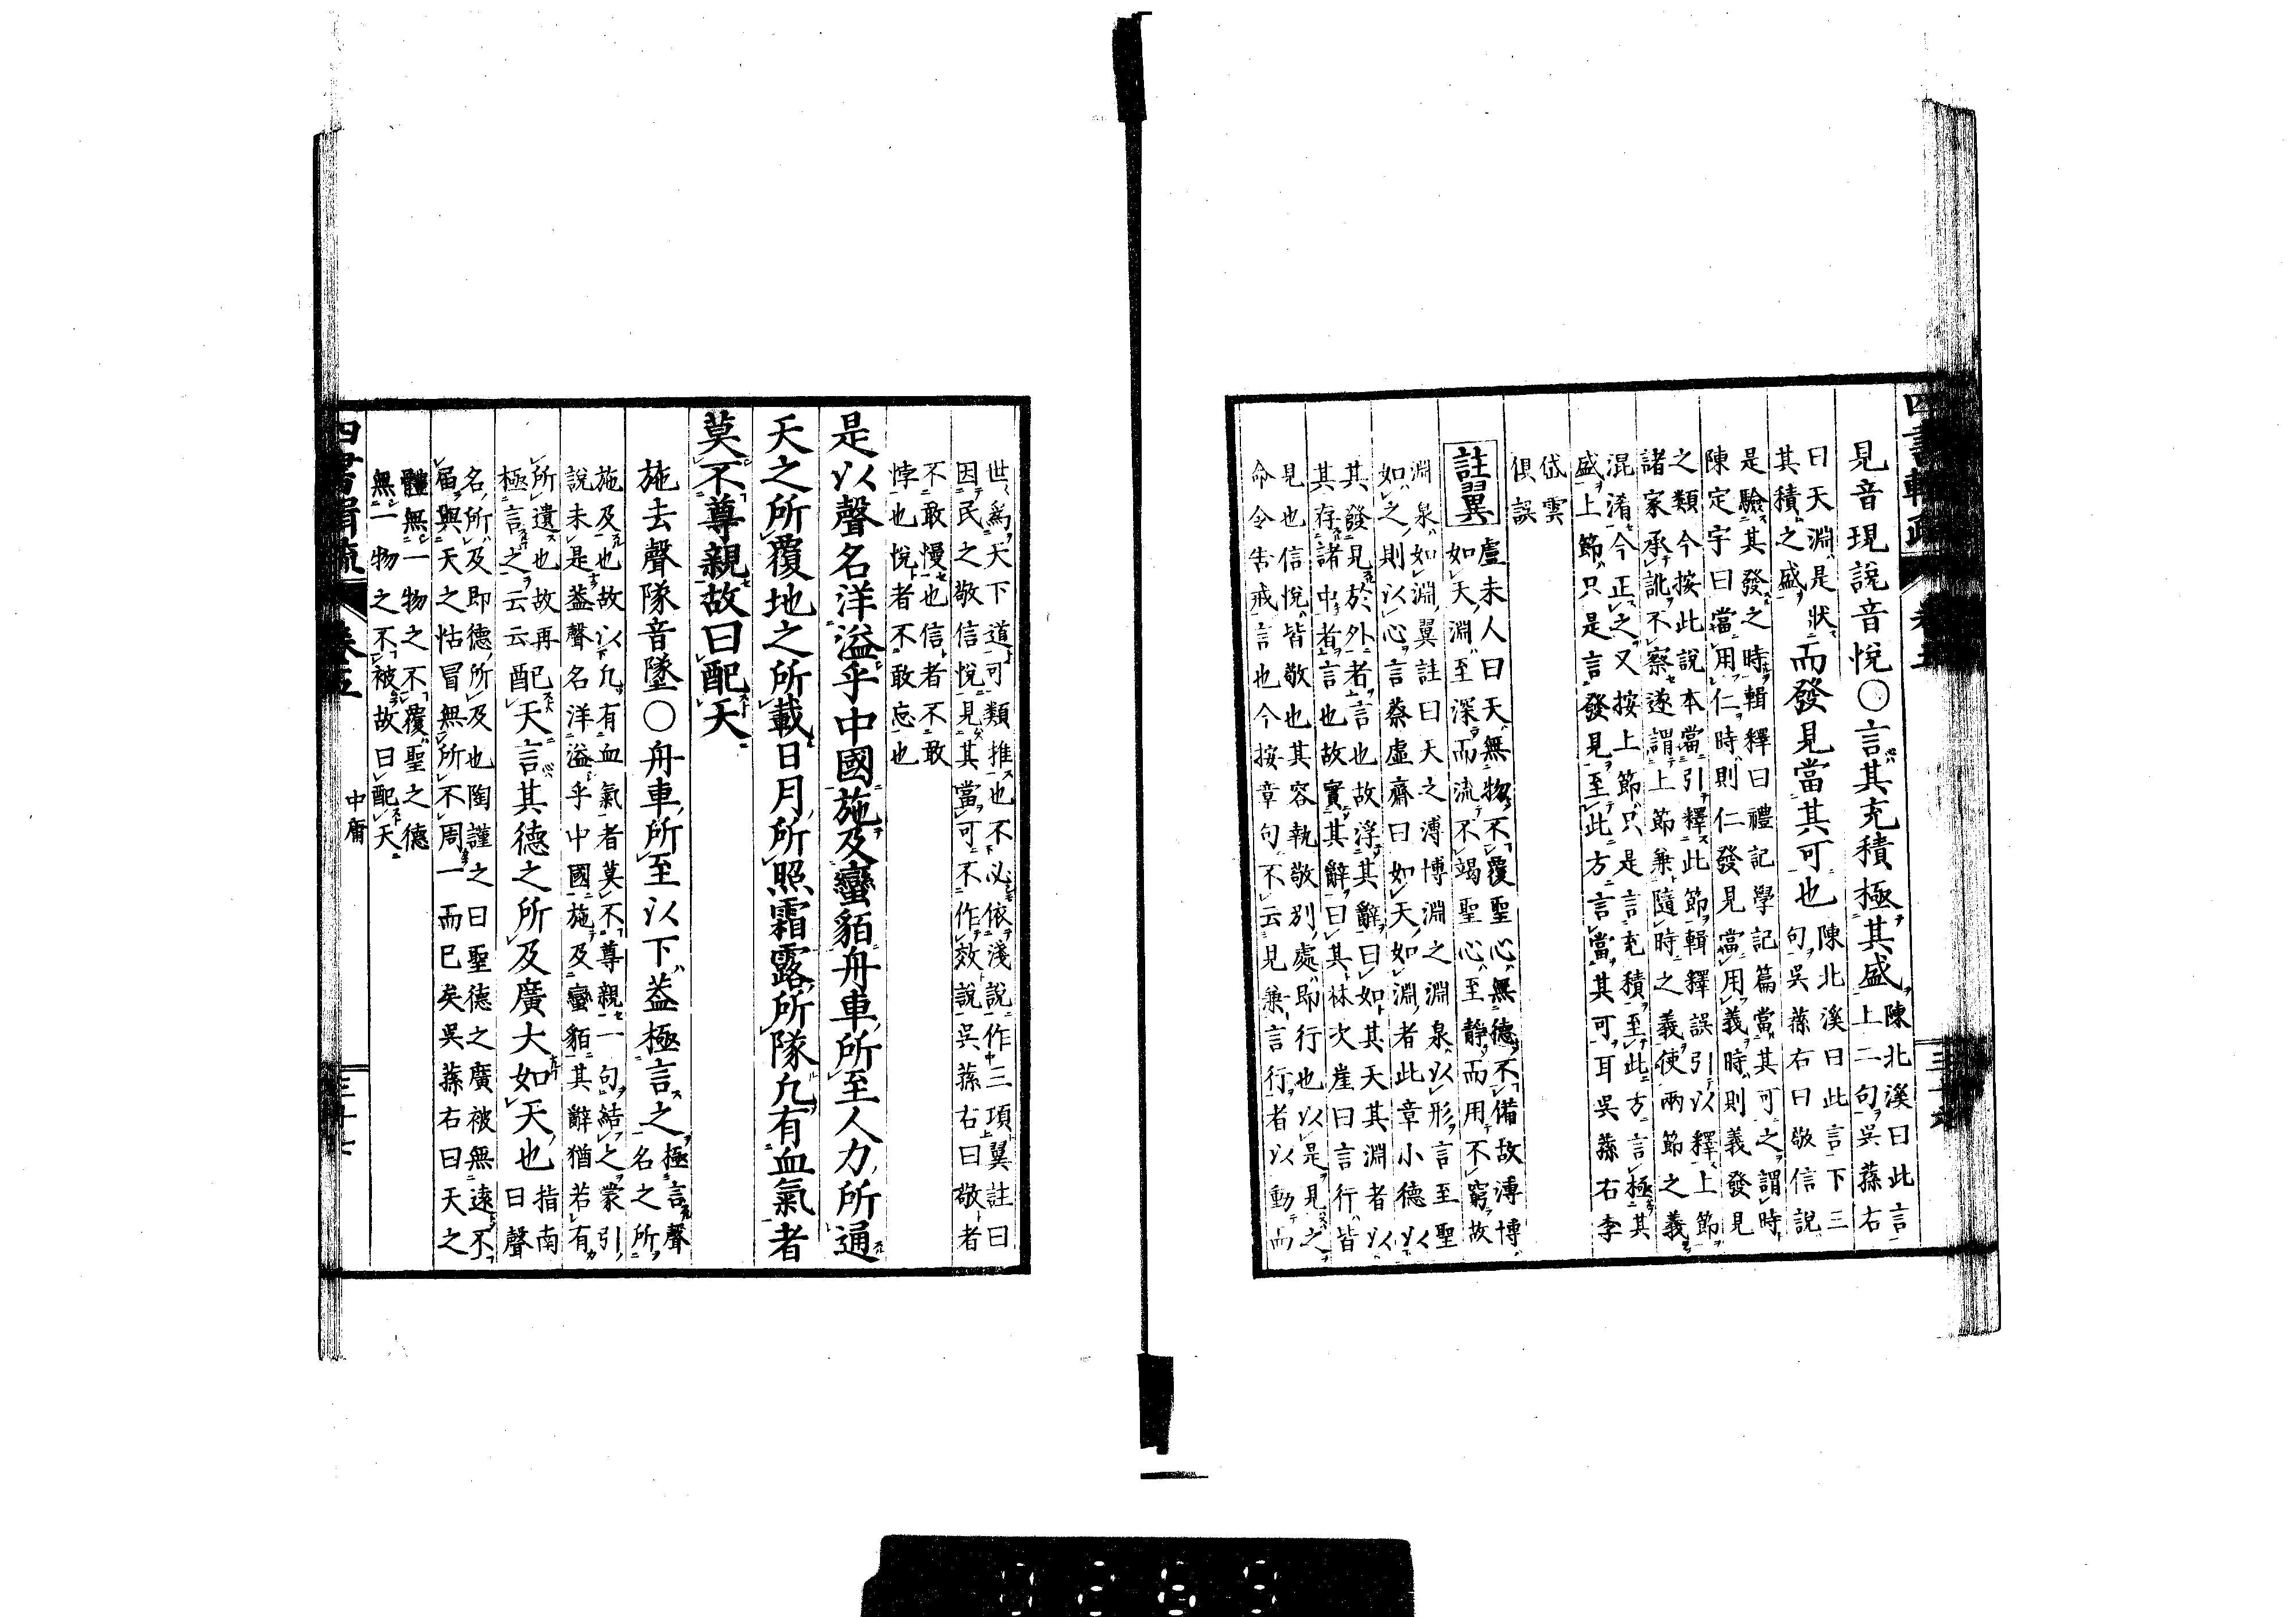 四書輯疏 卷五
見音現說音悅〇言其充積極其盛陳北溪曰此言
上二句吳蓀右
曰天淵是狀
其積之盛而發見當其可也陳北溪曰此言下三
句吳蓀右曰敬信說
是驗其發之時輯釋曰禮記學記篇當其可之謂時
陳定宇曰當用仁時則仁發見當用義時則義發見
之類今按此說本當引釋此節輯釋誤引以釋上節
諸家承訛不察遂謂上節兼隨時之義使兩節之義
混淆今正之又按上節只是言充積至此方言極其
盛上節只是言發見至此方言當其可耳吳蓀右李
岱雲
俱誤
註翼
盧未人曰天無物不覆聖心無德不備故溥博
如天淵至深而流不竭聖心至靜而用不窮故
淵泉如淵翼註曰天之溥博淵之淵泉以形言至聖
如之則以心言蔡虛齋曰如天如淵者此章小德以
其發見於外者言也故浮其辭曰如其天其淵者以
其存諸中者言也故實其辭曰其林次崖曰言行皆
見也信悅皆敬也其容執敬別處即行也以是見之
命令告戒言也今按章句不云見兼言行者以動而
世爲天下道可類推也不必依淺說作三項翼註曰
因民之敬信悅見其當可不作效說吳蓀右曰敬者
不敢慢也信者不敢
悖也悅者不敢忘也
是以聲名洋溢乎中國施及蠻貊舟車所至人力所通
天之所覆地之所載日月所照霜露所隊凡有血氣者
莫不尊親故曰配天
施去聲隊音墜〇舟車所至以下蓋極言之極言聲
名之所
施及也故以凡有血氣者莫不尊親一句結之蒙引
說未是蓋聲名洋溢乎中國施及蠻貊其辭猶若有
所遺也故再
極言之云云配天言其德之所及廣大如天也指南
曰聲
名所及即德所及也陶謹之曰聖德之廣被無遠不
届與天之怙冒無所不周一而已矣吳蓀右曰天之
體無一物之不覆聖之德
無一物之不被故曰配天
四書輯疏 卷五 中庸 三十七